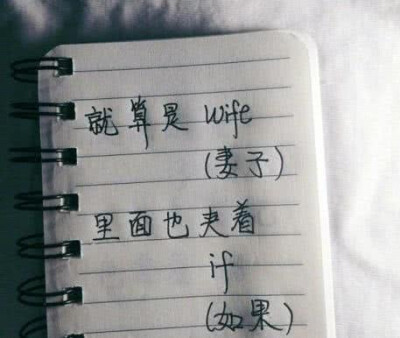 就算是 wife
(妻子)
里面也夹着
if
(如果)